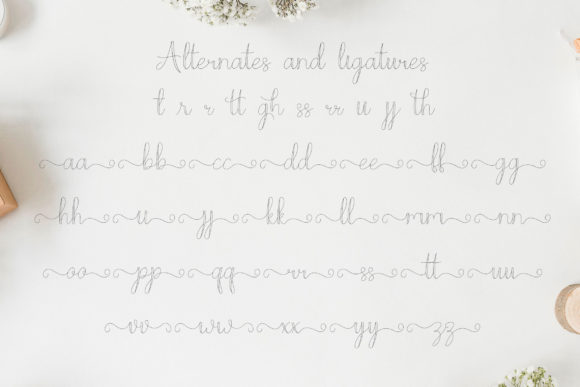 Alternates and ligatures
t r r tt gh ss rr ii jj th
aa bb cc dd ee ff gg
hh ii jj kk ll mm nn
oo pp qq rr ss tt uu
vv ww xx yy zz